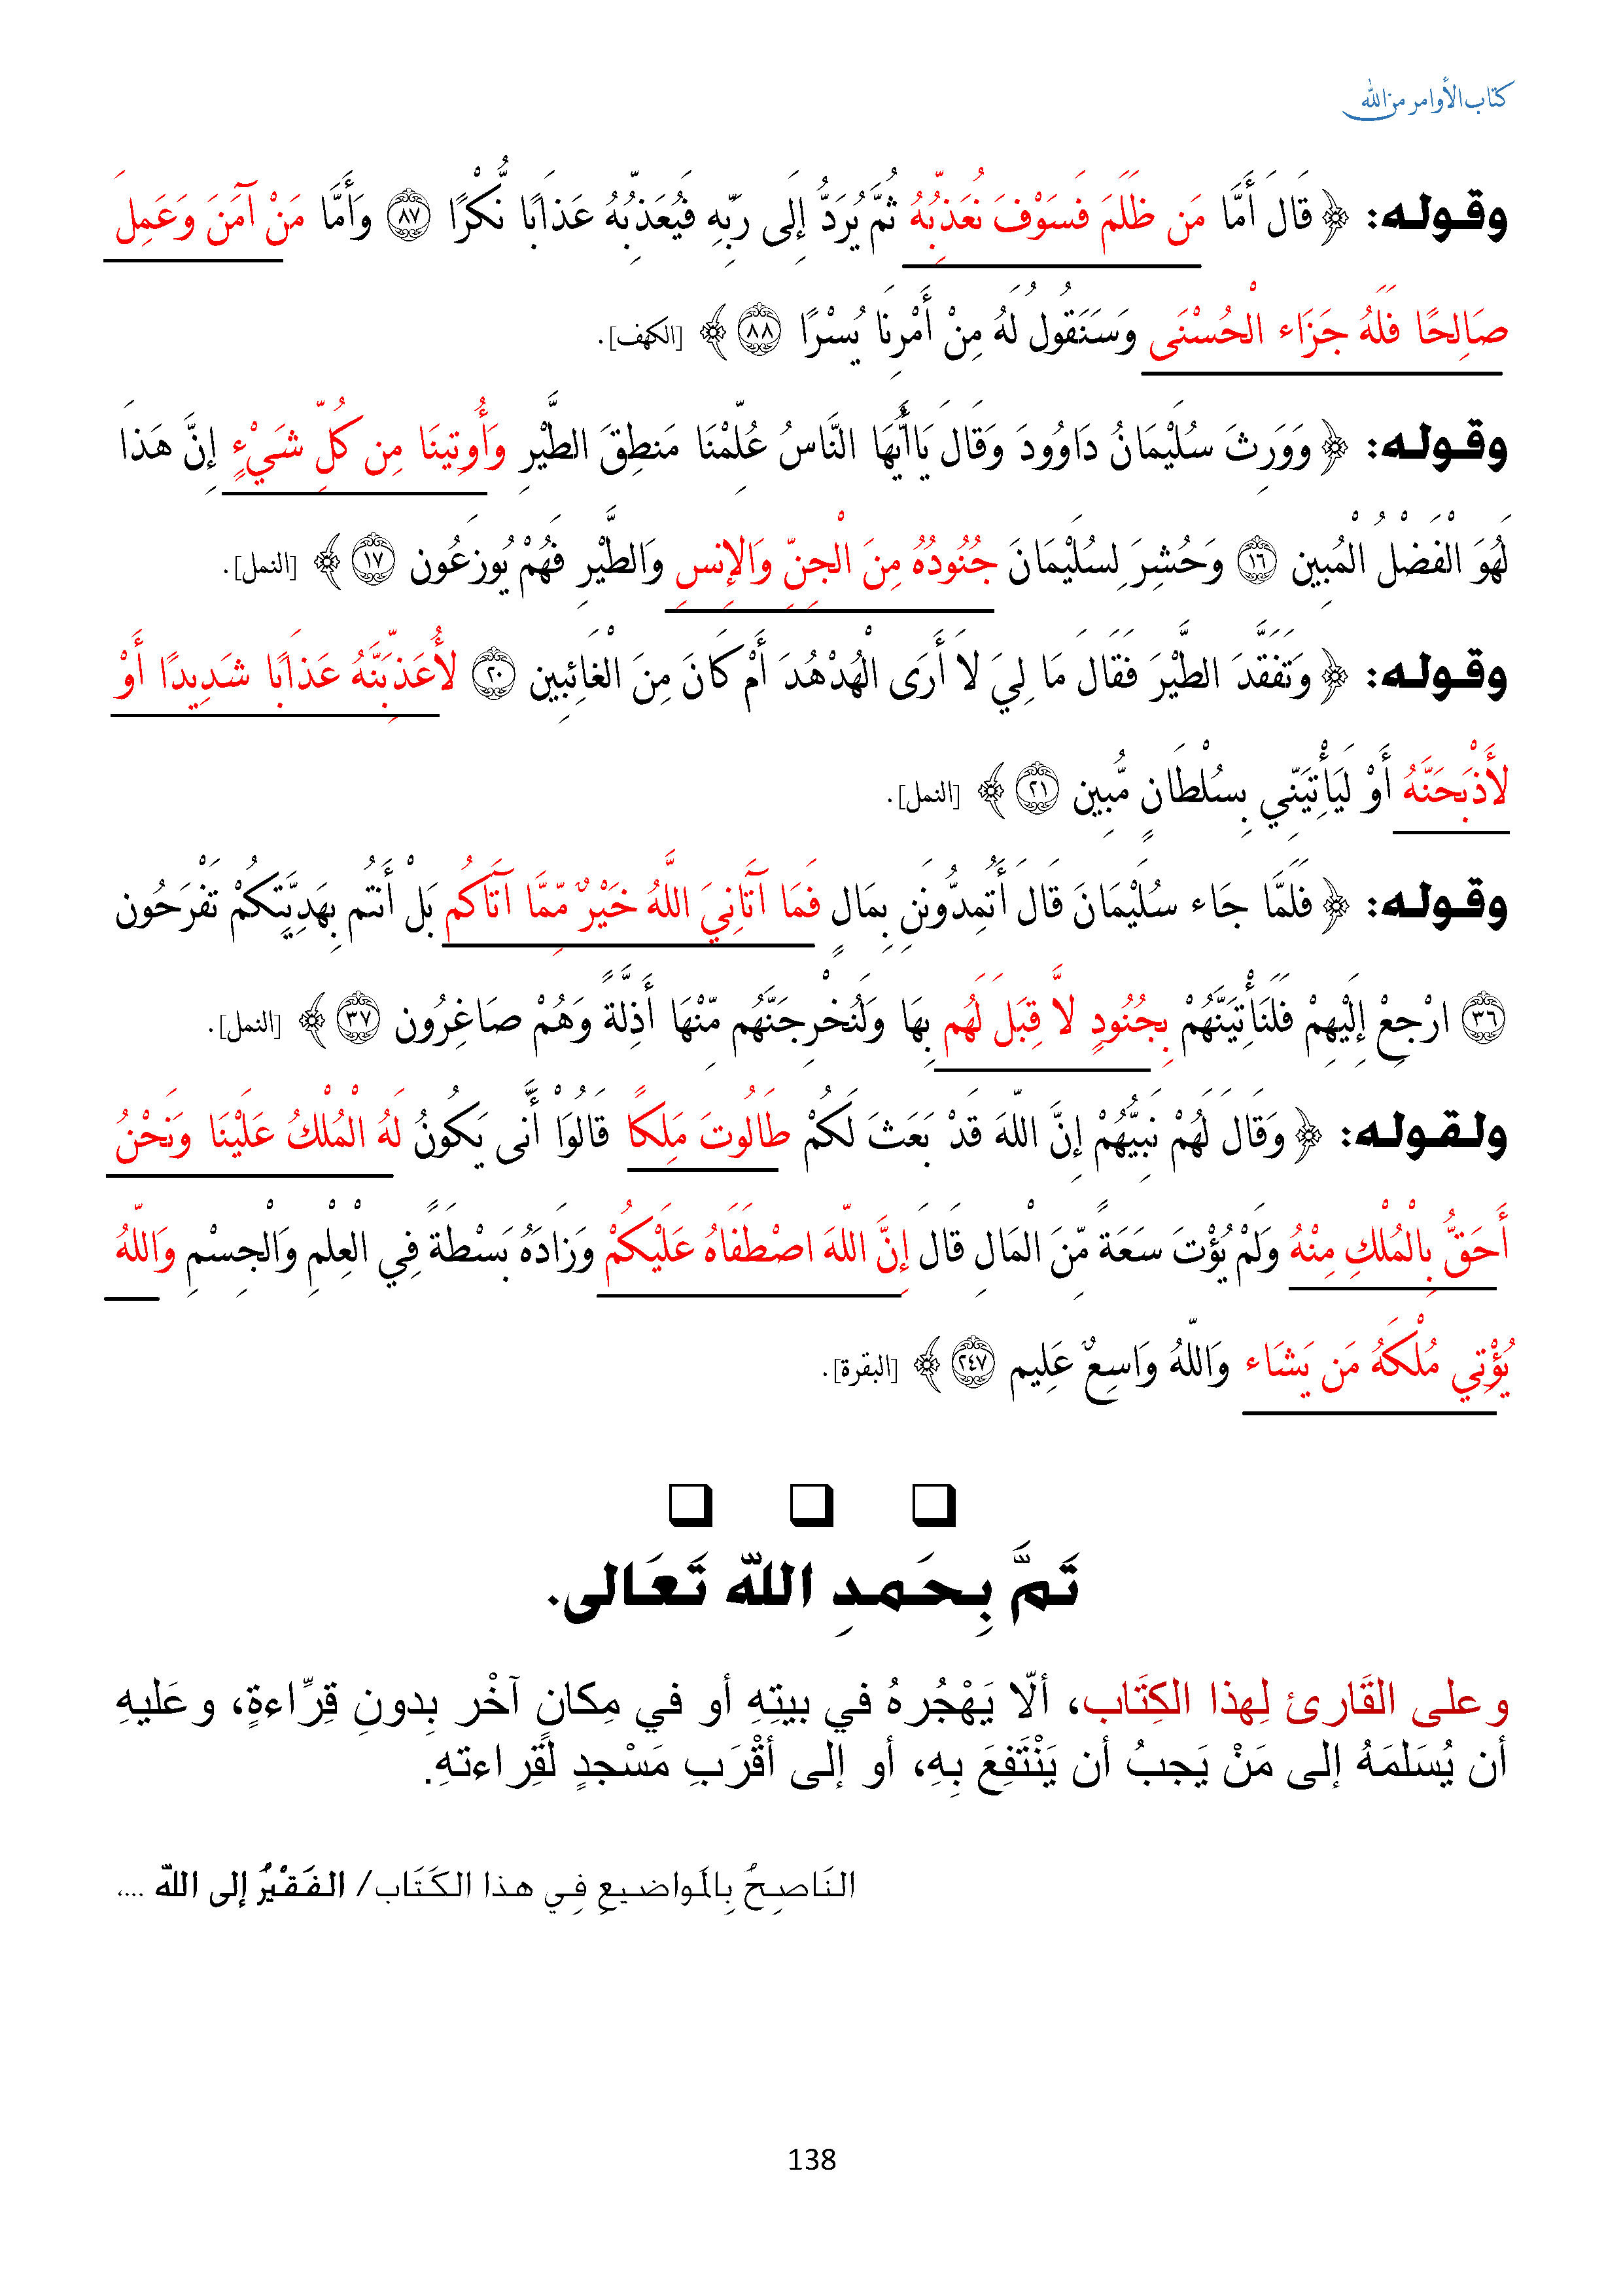 كتاب الأوامر من الله
وقوله: ﴿ قَالَ أَمَّا مَن ظَلَمَ فَسَوْفَ نُعَذِّبُهُ ثُمَّ يُرَدُّ إِلَى رَبِّهِ فَيُعَذِّبُهُ عَذَابًا نُّكْرًا ﴿٨٧﴾ وَأَمَّا مَنْ آمَنَ وَعَمِلَ
صَالِحًا فَلَهُ جَزَاء الْحُسْنَى وَسَنَقُولُ لَهُ مِنْ أَمْرِنَا يُسْرًا ﴿٨٨﴾ ﴾ [الكهف].
وقوله: ﴿ وَوَرِثَ سُلَيْمَانُ دَاوُودَ وَقَالَ يَاأَيُّهَا النَّاسُ عُلِّمْنَا مَنطِقَ الطَّيْرِ وَأُوتِينَا مِن كُلِّ شَيْءٍ إِنَّ هَذَا
لَهُوَ الْفَضْلُ الْمُبِين ﴿١٦﴾ وَحُشِرَ لِسُلَيْمَانَ جُنُودُهُ مِنَ الْجِنِّ وَالإِنسِ وَالطَّيْرِ فَهُمْ يُوزَعُون ﴿١٧﴾ ﴾ [النمل].
وقوله: ﴿ وَتَفَقَّدَ الطَّيْرَ فَقَالَ مَا لِيَ لاَ أَرَى الْهُدْهُدَ أَمْ كَانَ مِنَ الْغَائِبِين ﴿٢٠﴾ لأُعَذِّبَنَّهُ عَذَابًا شَدِيدًا أَوْ
لأَذْبَحَنَّهُ أَوْ لَيَأْتِيَنِّي بِسُلْطَانٍ مُّبِين ﴿٢١﴾ ﴾ [النمل].
وقوله: ﴿ فَلَمَّا جَاء سُلَيْمَانَ قَالَ أَتُمِدُّونَنِ بِمَالٍ فَمَا آتَانِيَ اللَّهُ خَيْرٌ مِّمَّا آتَاكُم بَلْ أَنتُم بِهَدِيَّتِكُمْ تَفْرَحُون
﴿٣٦﴾ ارْجِعْ إِلَيْهِمْ فَلَنَأْتِيَنَّهُمْ بِجُنُودٍ لاَّ قِبَلَ لَهُم بِهَا وَلَنُخْرِجَنَّهُم مِّنْهَا أَذِلَّةً وَهُمْ صَاغِرُون ﴿٣٧﴾ ﴾ [النمل].
ولقوله: ﴿ وَقَالَ لَهُمْ نَبِيُّهُمْ إِنَّ اللّهَ قَدْ بَعَثَ لَكُمْ طَالُوتَ مَلِكًا قَالُوَاْ أَنَّى يَكُونُ لَهُ الْمُلْكُ عَلَيْنَا وَنَحْنُ
أَحَقُّ بِالْمُلْكِ مِنْهُ وَلَمْ يُؤْتَ سَعَةً مِّنَ الْمَالِ قَالَ إِنَّ اللّهَ اصْطَفَاهُ عَلَيْكُمْ وَزَادَهُ بَسْطَةً فِي الْعِلْمِ وَالْجِسْمِ وَاللّهُ
يُؤْتِي مُلْكَهُ مَن يَشَاء وَاللّهُ وَاسِعٌ عَلِيم ﴿٢٤٧﴾ ﴾ [البقرة].
تَمَّ بِحَمدِ اللّه تَعَالى.
وعلى القَارئ لِهذا الكِتَاب، ألّا يَهْجُرهُ في بيتِهِ أو في مِكانٍ آخْر بِدونِ قِرِّاءةٍ، وعَليهِ
أن يُسَلمَهُ إلى مَنْ يَجبُ أن يَنْتَفِعَ بِهِ، أو إلى أقْرَبِ مَسْجدٍ لقِراءتهِ.
النَاصِحُ بِالمَواضيعِ فِي هذا الكَتَاب/ الفَقْيرُ إلى اللّه ....،
138